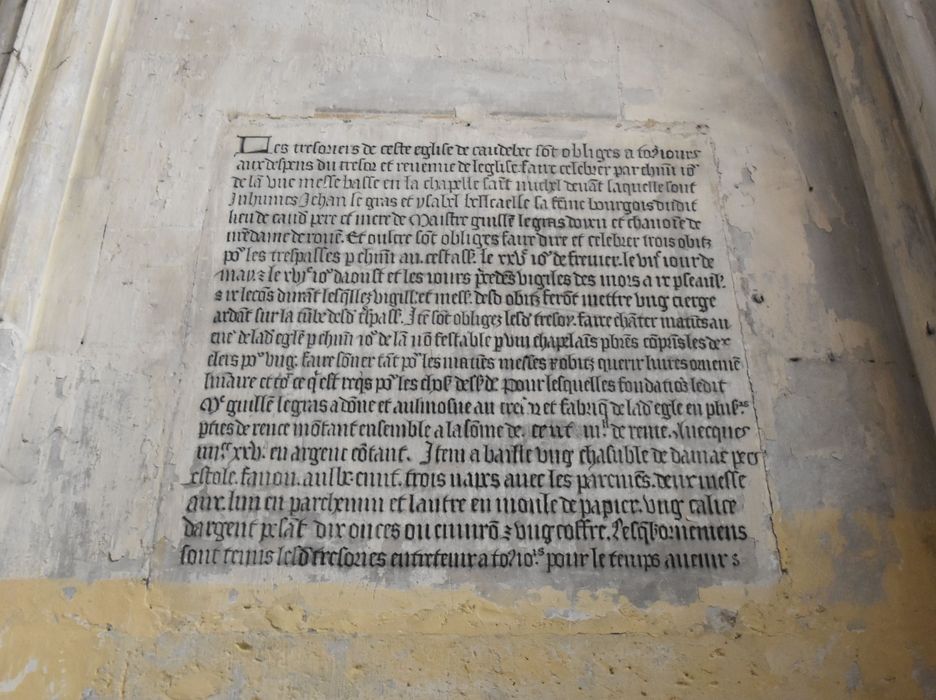 Les tresoriers de ceste eglise de caudebec sōt obliges a toꝰ iours
aux despens du tresor et revenue de leglise. faire celebrer par chūn ioᵉ
de lā vne messe basse en la chapelle saīt michel devāt laquelle sont
Inhumes Jehan le gras et ysabel bellecaelle sa fēme bourgois dudit
lieu de caud pere et mere de Maistre guillē le gras doien et chanoīe de
nr̄e dame de rouē. Et oultre sōt obliges faire dire et celebrer trois obitz
poᵉ les trespasses p chūn an. cest ass. le xxvᵉ ioᵉ de freuier. le viſᵉ iour de
may. ⁊ le xviᵉ ioᵉ daoust et les iours p̄cedēs vigiles des mors a ix pseaul.
⁊ ix lecōs durāt lesq̄llez vigill. et mess. desd obitz ferōt mettre vng cierge
ardāt sur la tūbe desd t̄spass. Itē sōt obligez lesd tresor. faire chāter matines au
cue de lad eglē p chūn ioᵉ de lā nō festable p viii chapelaīs pb̄res cōprīs les
clers poᵉ vng. faire sōner tāt poᵉ les matīes messes ⁊ obitz querir liures
lināire et toᵗ ce q̄ est reqs poᵉ les Pour lesquelles fondatiōs ledit
Mᵉ guillē le gras a dōne et aulmosne au tresᵒʳ et fabriq̄ de lad eglē en plusʳˢ
pties de rēte mōtant ensemble a la sōme de. de rente. Auecques
iiiᶜ xxv. en argent cōtant. Item a baille vng chasuble de damas pers
estole. fanon. aulbe. trois napes avec les paremēs. deux messe
aux. lun en parchemin et lautre en moule de papier. vng calice
dargent pesāt dix onces ou enuirō ⁊ vng coffre. Lesq̄lz ornemens
sont tenus lesd tresoriers entretenir a toꝰ ioʳˢ pour le temps auenir ⁊